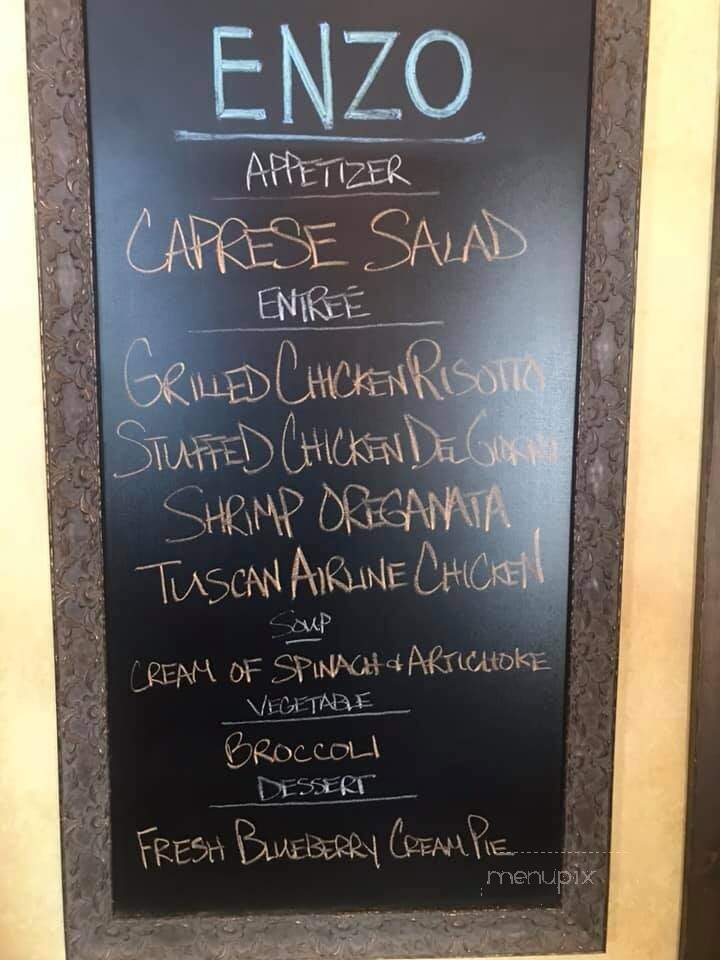 ENZO
APPETIZER
CAPRESE SALAD
ENTREÉ
GRILLED CHICKEN RISOTTO
STUFFED CHICKEN DEL GIORNO
SHRIMP OREGANATA
TUSCAN AIRLINE CHICKEN
SOUP
CREAM OF SPINACH & ARTICHOKE
VEGETABLE
BROCCOLI
DESSERT
FRESH BLUEBERRY CREAM PIE
menupix